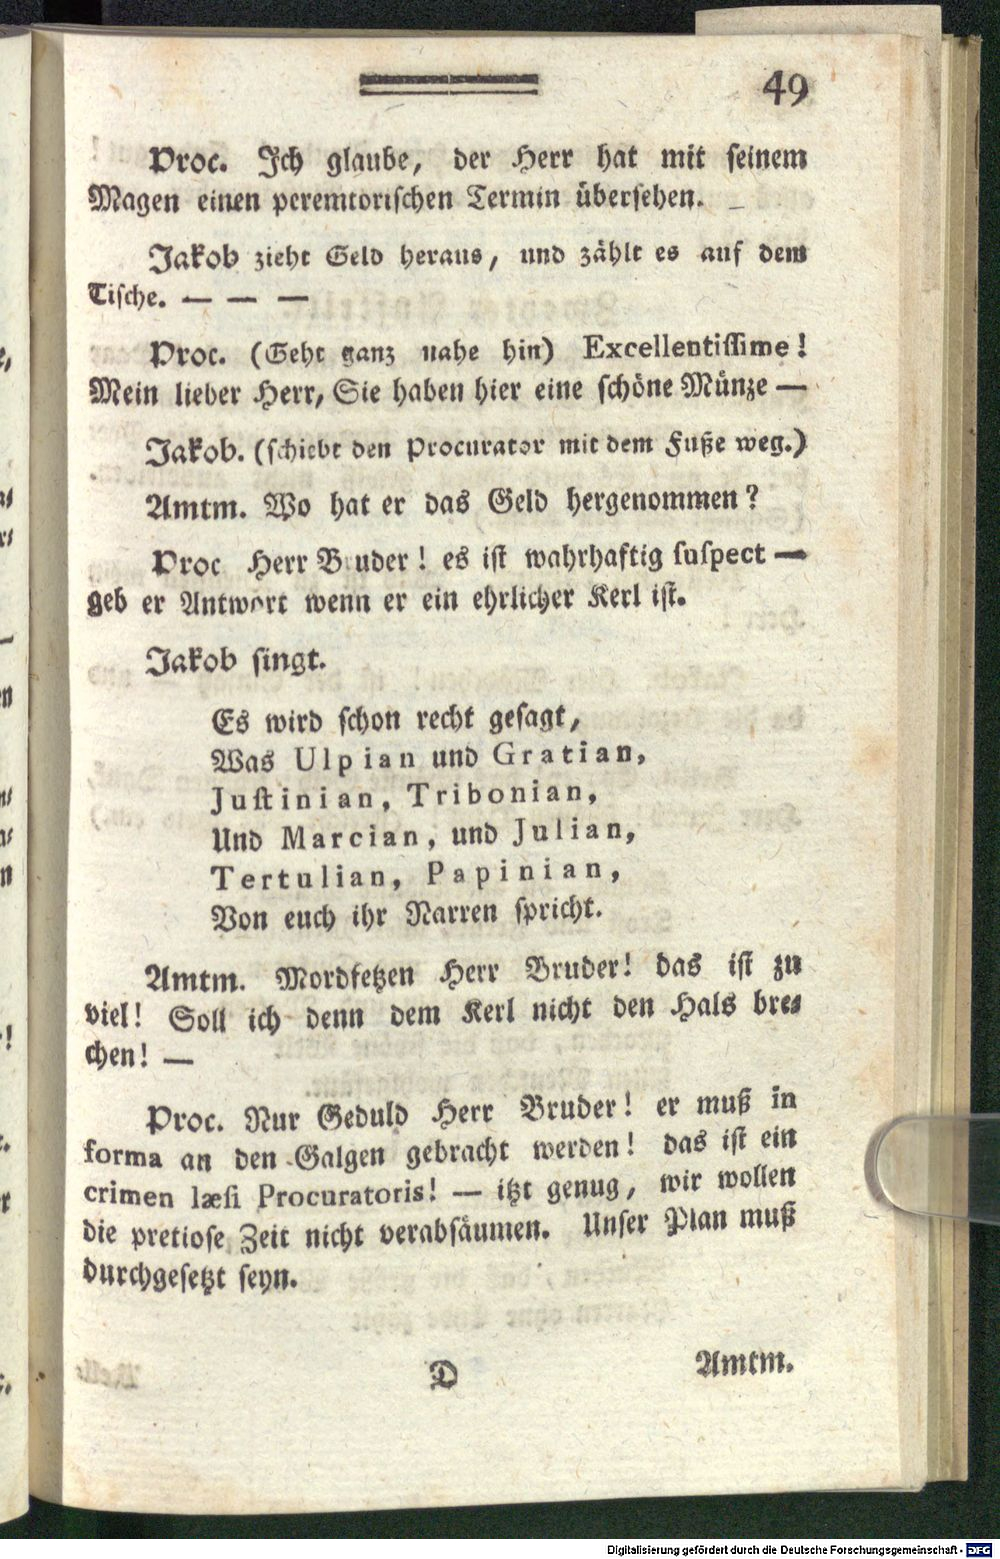 49
Proc. Ich glaube, der Herr hat mit seinem
Magen einen peremtorischen Termin übersehen.
Jakob zieht Geld heraus, und zählt es auf dem
Tische. — — —
Proc. (Geht ganz nahe hin) Excellentissime!
Mein lieber Herr, Sie haben hier eine schöne Münze —
Jakob. (schiebt den Procurator mit dem Fuße weg.)
Amtm. Wo hat er das Geld hergenommen?
Proc Herr Bruder! es ist wahrhaftig suspect —
geb er Antwort wenn er ein ehrlicher Kerl ist.
Jakob singt.
Es wird schon recht gesagt,
Was Ulpian und Gratian,
Justinian, Tribonian,
Und Marcian, und Julian,
Tertulian, Papinian,
Von euch ihr Narren spricht.
Amtm. Mordfetzen Herr Bruder! das ist zu
viel! Soll ich denn dem Kerl nicht den Hals bre-
chen! —
Proc. Nur Geduld Herr Bruder! er muß in
forma an den Galgen gebracht werden! das ist ein
crimen læsi Procuratoris! — itzt genug, wir wollen
die pretiose Zeit nicht verabsäumen. Unser Plan muß
durchgesetzt seyn.
D Amtm.
Digitalisierung gefördert durch die Deutsche Forschungsgemeinschaft - DFG